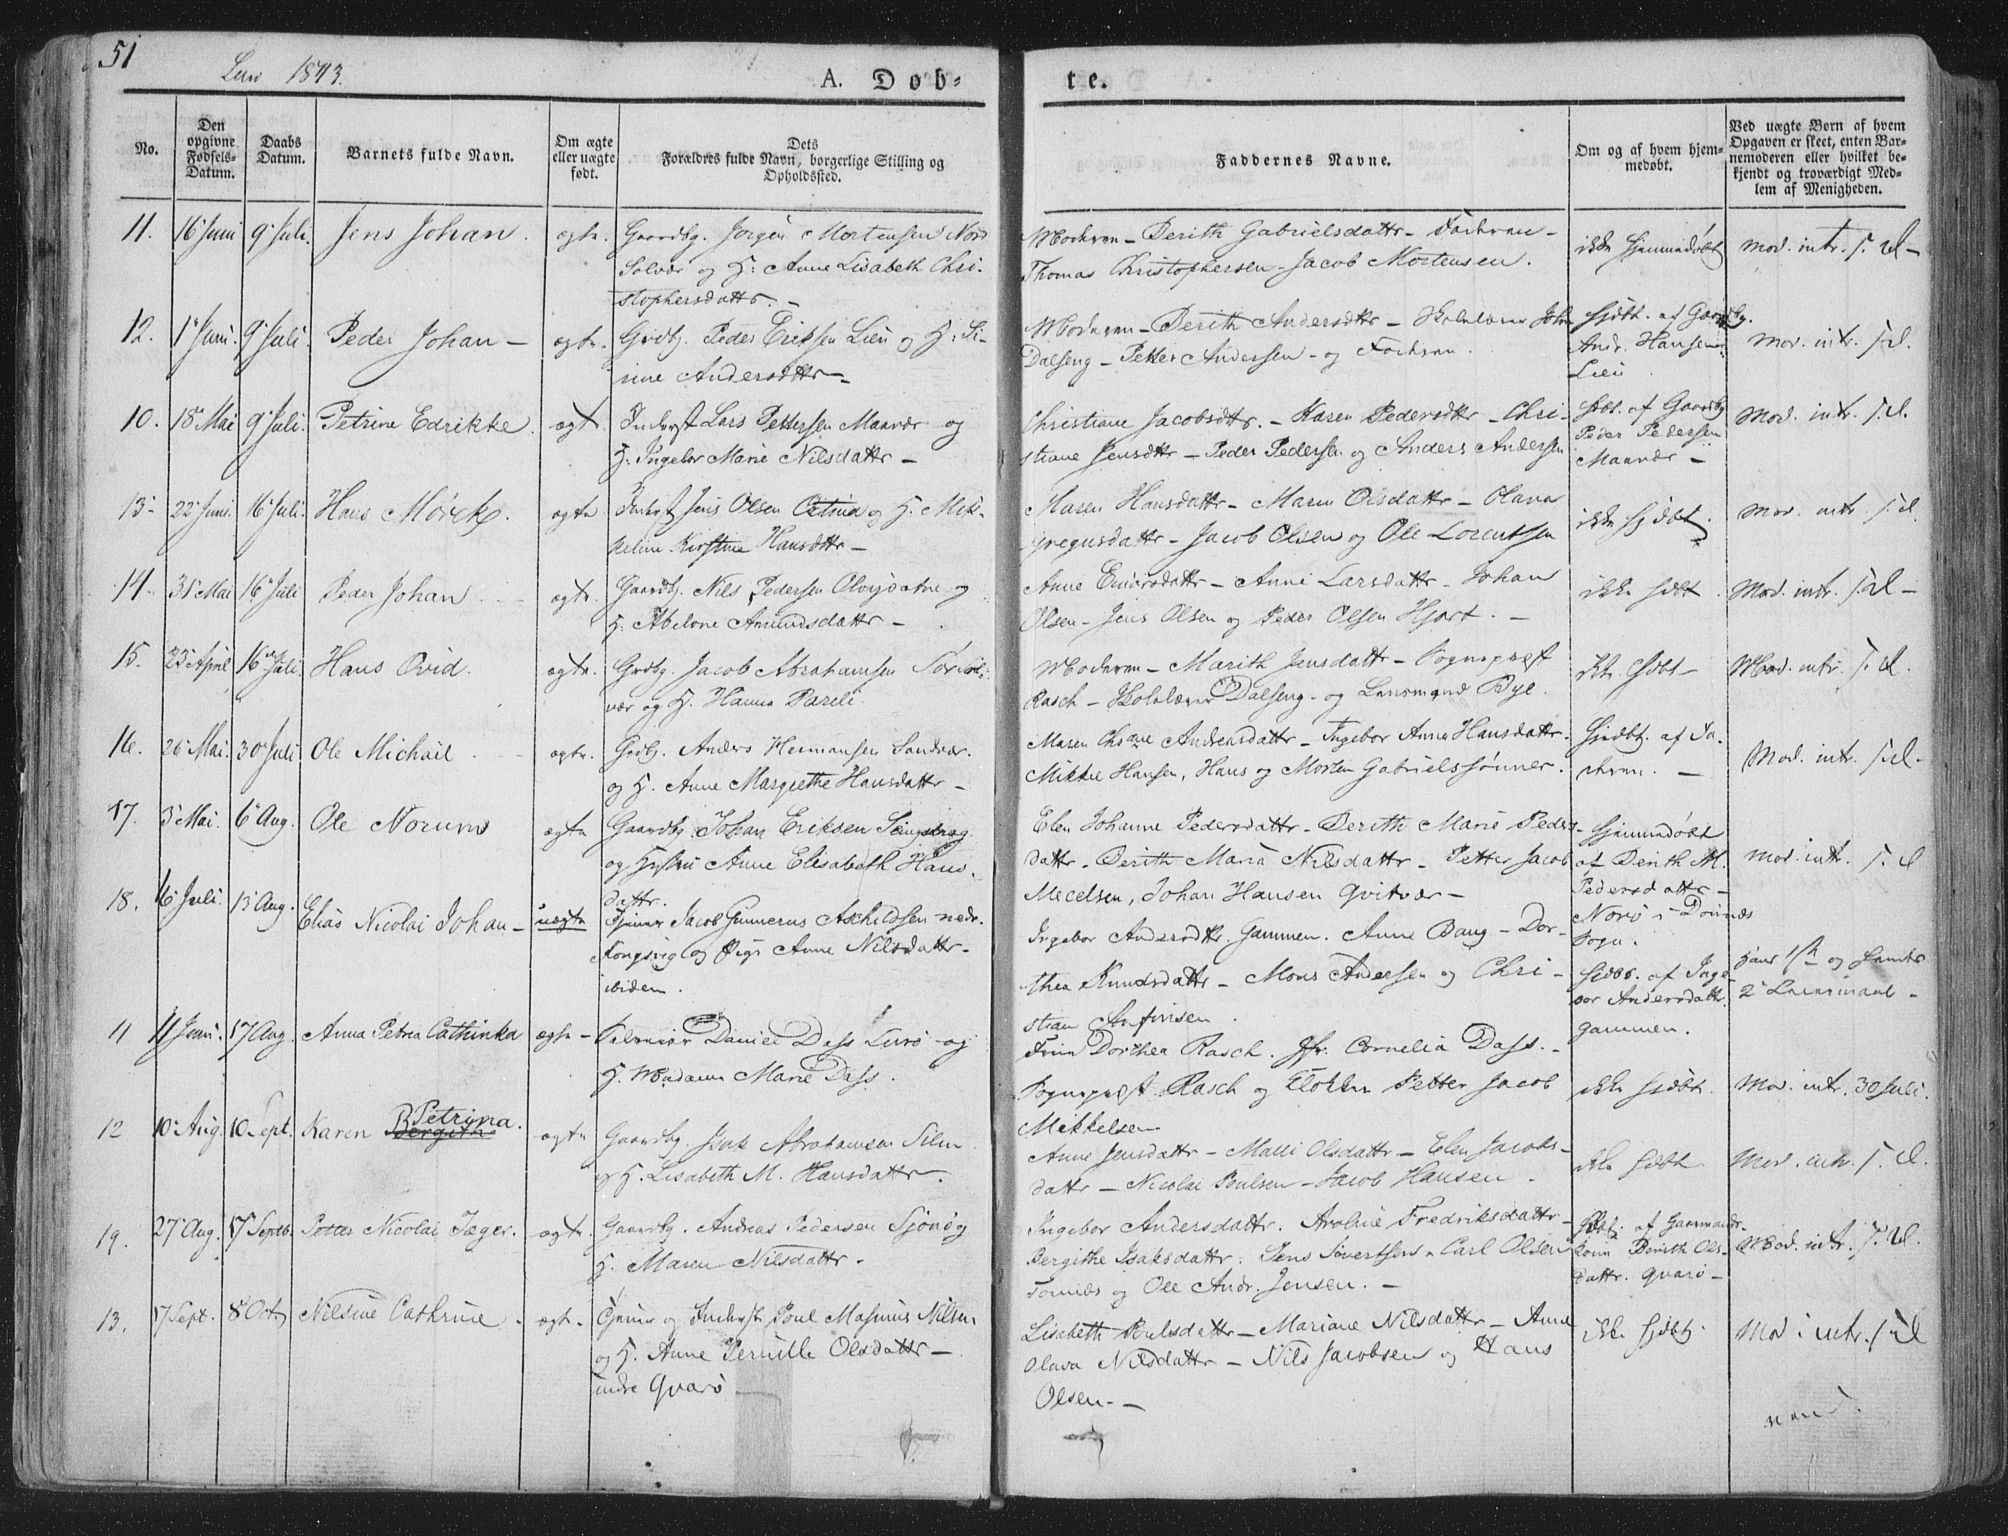 51
Lurø 1843.
A. Døb-
te.
No.
Den opgivne Fødsels-Datum.
Daabs Datum.
Barnets fulde Navn.
Om ægte eller uægte født.
Dets
Forældres fulde Navn, borgerlige Stilling og
Opholdssted.
Faddernes Navne.
Om og af hvem hjem-
medøbt.
Ved uægte Børn af hvem
Opgaven er skeet, enten Bar-
nemoderen eller hvilket be-
kjendt og troværdigt Med-
lem af Menigheden.
11. 16 Juni 9 Juli. Jens Johan. ægte. Gaardbg. Jørgen Mortensen Nord
Solvær og H: Anne Lisabeth Chri-
stophersdattr. –
Moderen – Berith Gabrielsdattr – Faderen –
Thomas Christophersen – Jacob Mortensen.
ikke hjemmedøbt
Mod. intr. s. d –
12. 1 Juni 9 Juli. Peder Johan – ægte. Grdbg. Peder Eriksen Lien og H. Si-
rine Andersdttr –
Moderen – Berith Andersdttr – Skolelærer John
Dalseng – Petter Andersen – og Faderen.
hjdøbt. af Gaardbg.
Andr. Hansen
Lien
Mod. intr. s. d.
10. 18 Mai 9 Juli. Petrine Edrikke. ægt. Inderst Lars Pettersen Maavær og
H. Ingebor Marie Nilsdattr –
Christiane Jacobsdttr. – Karen Pedersdttr – Chri-
stiane Jensdttr – Peder Pedersen og Anders Andersen
hdbt. af Gaardbg
Peder Pedersen
Maavær –
Mod. intr. s. d.
13 – 22 Juni. 16 Juli. Hans Mørck. ægte Inderst Jens Olsen og H. Mek-
keline Kirstine Hansdttr –
Maren Hansdattr – Maren Olsdattr – Olava
Gregusdattr – Jacob Olsen og Ole Lorentsen
ikke hjdøbt.
Mod. intr. s. d.
14. 31 Mai 16 Juli Peder Johan ægte. Gaardbg. Nils Pedersen og
H. Abelone Amundsdattr –
Anne – Anne Larsdattr – Johan
Olsen – Jens Olsen og Peder Olsen Hjort. –
ikke hdøbt.
Mod. intr. s. d –
15. 25 April 16 Juli. Hans Ovid. ægte. Grdbg. Jacob Abrahamsen Sørsol-
vær og H. Hanna Pareli.
Moderen – Marith Jensdattr – Sognepræst
Rasch – Skolelærer Dalseng – og Lensmand Bye.
ikke hdbt –
Mod. intr. s. d.
16. 26 Mai. 30 Juli Ole Michail ægte. Grdbg. Anders Hermansen Sandvær.
og H. Anne Margrethe Hansdattr –
Maren Andreasdattr – Ingebor Anna Hansdattr.
Mikkel Hansen, Hans og Morten Gabrielssønner.
hjdbt. af Fa-
deren. –
Mod. intr. s. d –
17. 3 Mai. 6 Aug. Ole Norum ægte Gaardbg. Johan Eriksen
og Hustru Anne Elisabeth Hans-
dattr.
Elen Johanne Pedersdattr – Berith Marie Peders-
dattr – Berith Maria Nilsdattr – Petter Jacob
Mecelsen, Johan Hansen Qvitvær –
hjemmedøbt
af Berith M.
Pedersdattr –
Norø i Dønnæs
Sogn.
Mod. intr. s. d
18. 6 Juli. 13 Aug. Elias Nicolai Johan – uægte Tjener Jacob Gunnerus Aschildsen nedr.
Kongsvig og Pige Anne Nilsdattr –
ibidem.
Ingebor Andersdttr. Gammen. Anne Baug – Dor-
thea Knudsdattr – Mons Andersen og Chri-
stian Anfinsen.
hdbt. af Inge-
bor Andersdattr.
Gammen.
hans 1ste og hendes
2 Leiermaal –
11 11 Juni. 17 Aug. Anna Petrea Cathinka ægte – Daniel Dass Lurø – og
H. Madam Marie Dass.
Fruen Dorthea Rasch. Jfr. Cornelia Dass. –
Sognepræst Rasch og Klokker Petter Jacob
Mikkelsen
ikke hjdøbt.
Mod. intr. 30 Juli.
12 10 Aug. 10 Sept. Karen Bergith Petrina. ægte Gaardbg. Isak Abrahamsen
og H. Lisabeth M. Hansdattr.
Anne Jensdattr – Malli Olsdattr – Elen Jacobs-
dattr – Nicolai Poulsen – Jacob Hansen –
ikke hdbt.
Mod. intr. s. d.
19. 27 Aug. 17 Septb. Petter Nicolai Jæger. ægte. Gaardbg. Andreas Pedersen Sjonø
H. Maren Nilsdattr –
Ingebor Andersdattr. Aroline Fredriksdattr –
Bergithe Isaksdattr. Jens Sivertsen – Carl Olsen
og Ole Andr. Jensen. –
hdbt. af Gaardmands-
konen Berith Ols-
dattr. Qvarø –
Mod. intr. s. d.
13. 17 Sept. 8 Oct. Nilsine Cathrine. ægt. Tjener og Inderst Poul Masinus Nilsen
og H. Anne Pernille Olsdattr –
indre Qvarø
Lisabeth Poulsdattr – Mariane Nilsdattr – Anne
Olava Nilsdattr – Nils Jacobsen og Hans
Olsen. –
ikke hjdbt.
Mod. intr. s. d